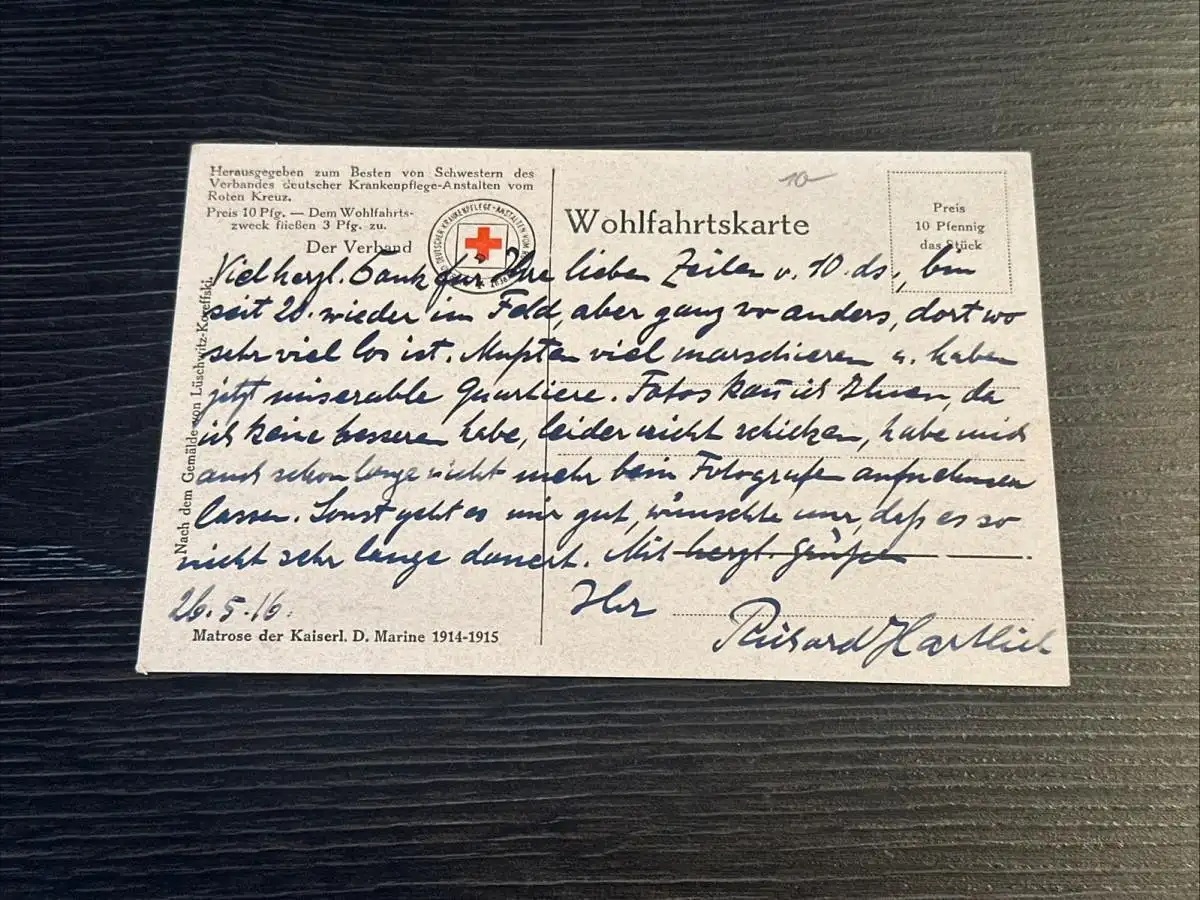 Herausgegeben zum Besten von Schwestern des
Verbandes deutscher Krankenpflege-Anstalten vom
Roten Kreuz.
Preis 10 Pfg. — Dem Wohlfahrts-
zweck fließen 3 Pfg. zu.
Der Verband
DEUTSCHER KRANKENPFLEGE-ANSTALTEN VOM
10-
Wohlfahrtskarte
Preis
10 Pfennig
das Stück
Viel herzl. Dank für Ihre lieben Zeilen v. 10. ds., bin
seit 20. wieder im Feld, aber ganz wo anders, dort wo
sehr viel los ist. Mußten viel marschieren u. haben
jetzt miserable Quartiere. Fotos kan̅ ich Ihnen, da
ich keine besseren habe, leider nicht schicken, habe mich
auch schon lange nicht mehr beim Fotografen aufnehmen
lassen. Sonst geht es mir gut, wünschte nur, daß es so
nicht sehr lange dauert. Mit herzl. Grüßen
Ihr
26.5.16.
Richard Hartlieb
Nach dem Gemälde von Lüschwitz-Koreffski.
Matrose der Kaiserl. D. Marine 1914-1915